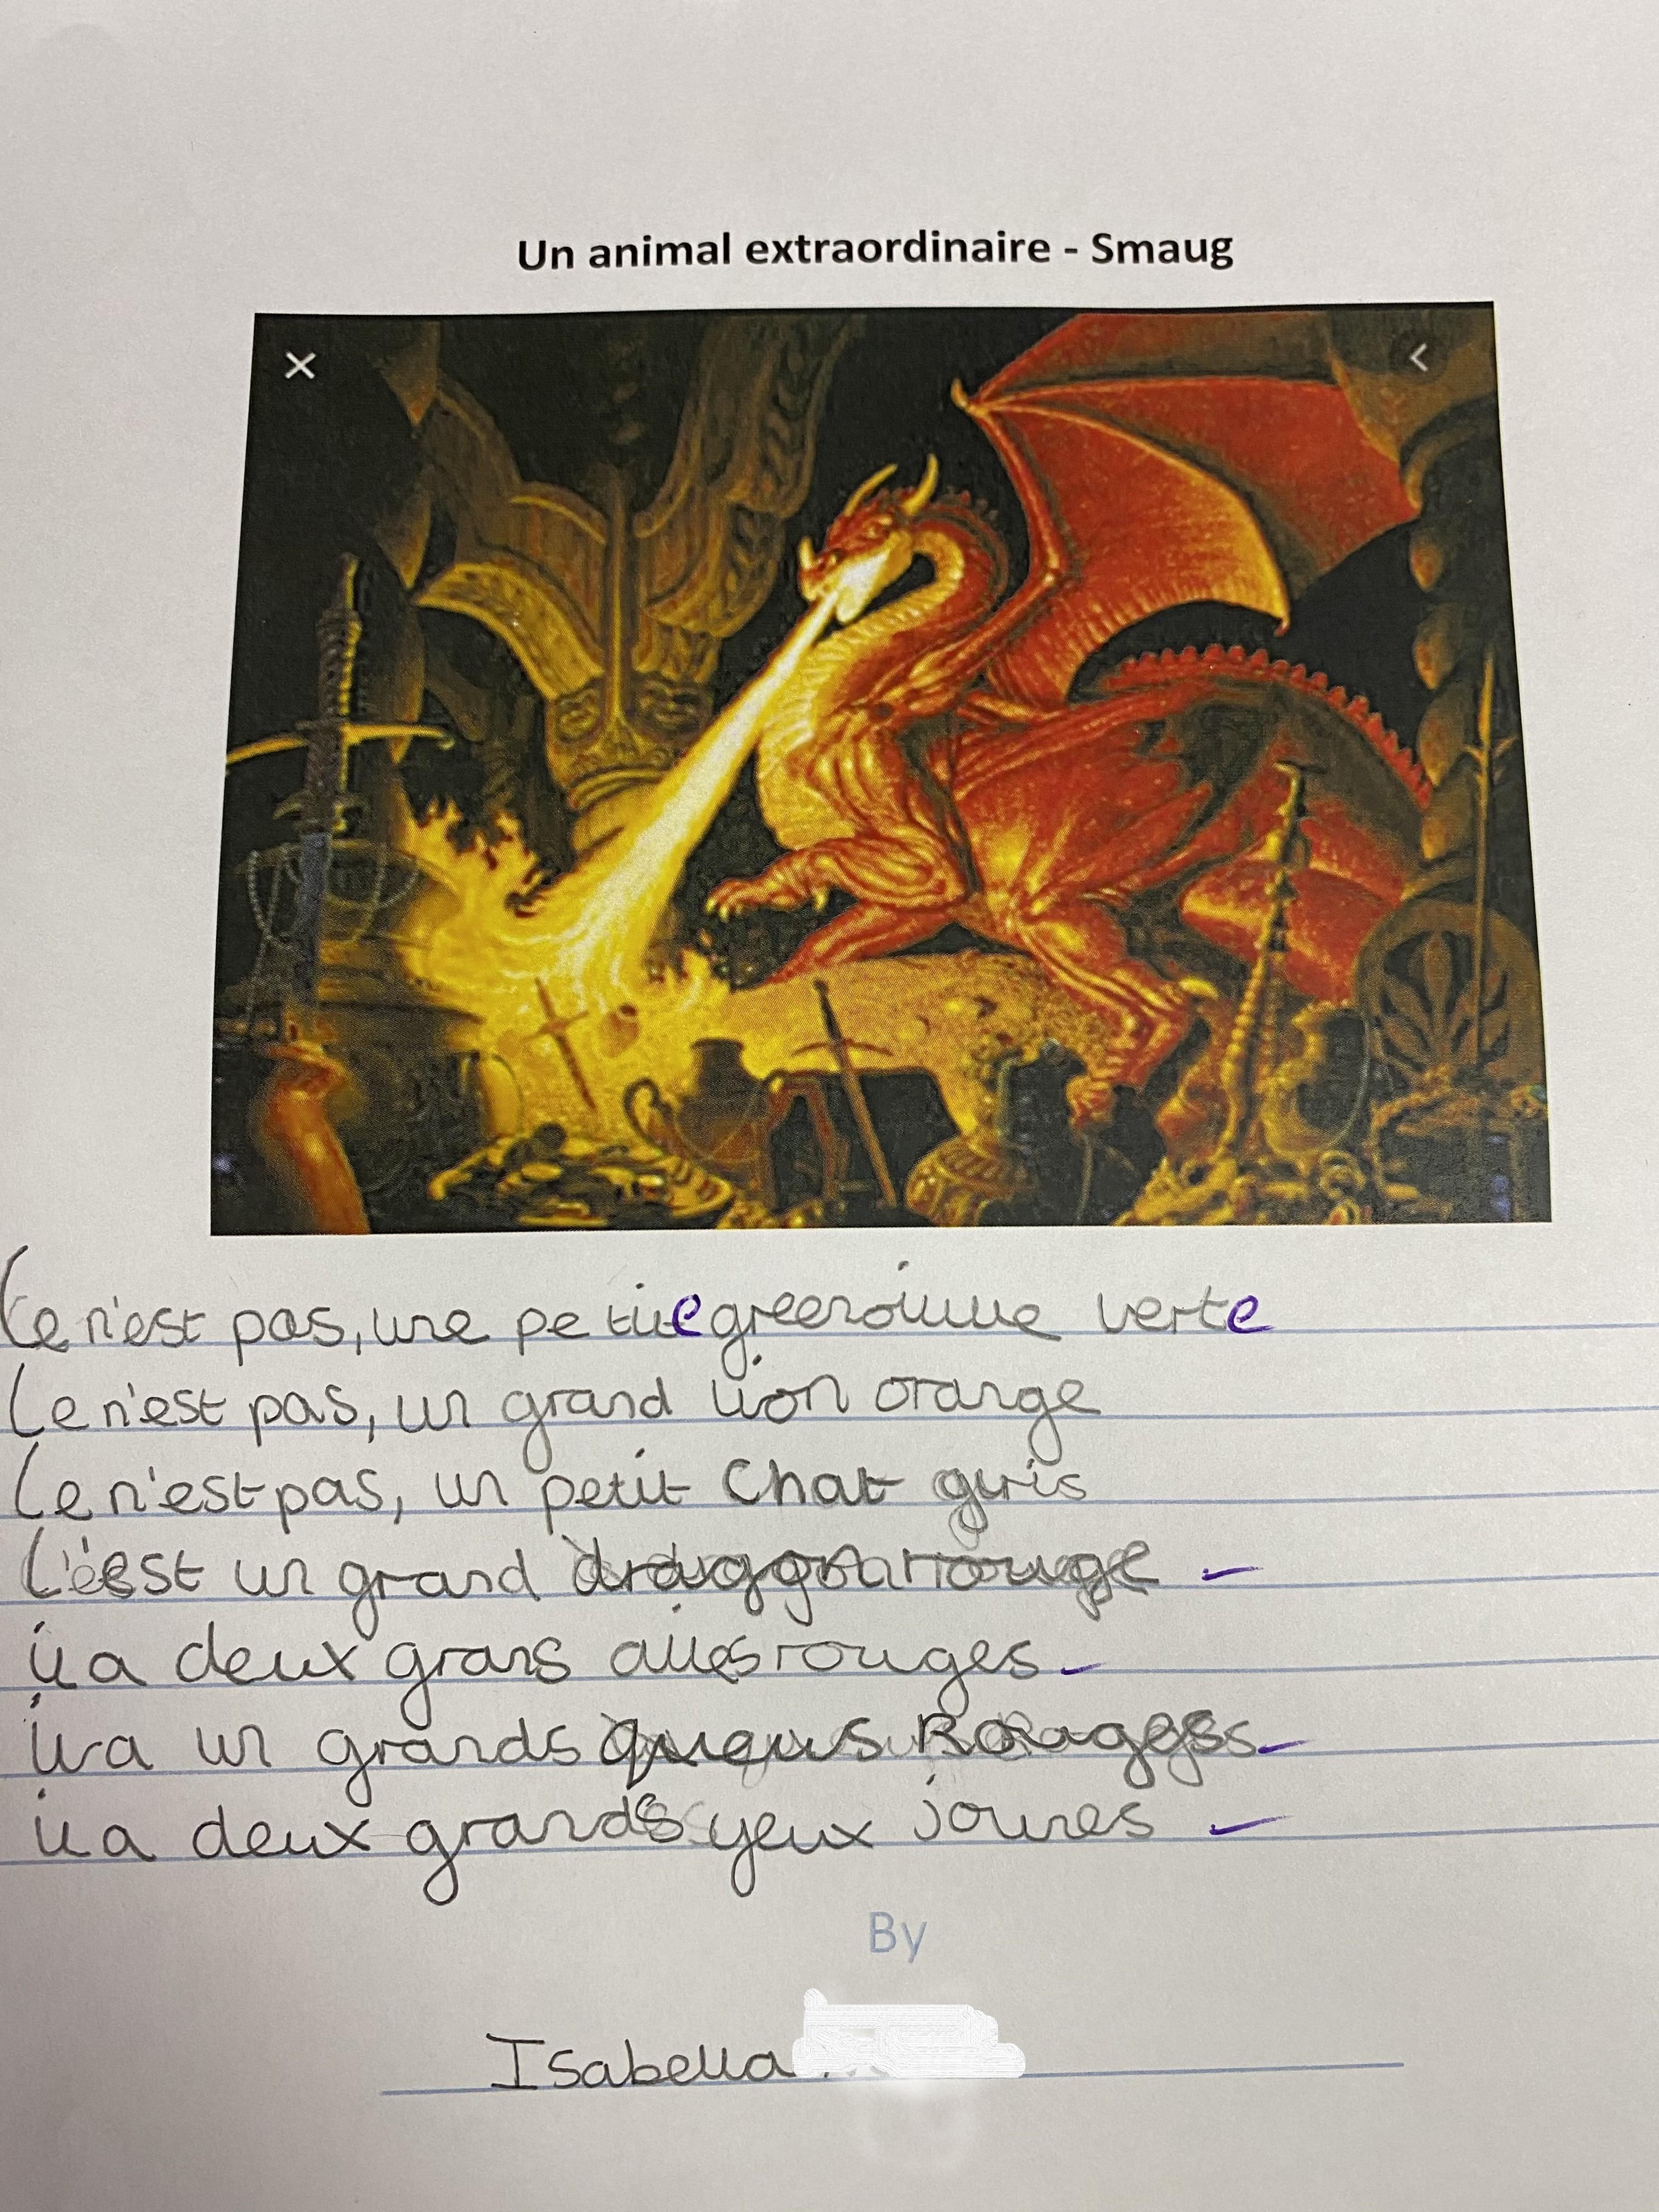 Un animal extraordinaire - Smaug
Ce n'est pas, une petite greenouille verte
Ce n'est pas, un grand lion orange
Ce n'est pas, un petit Chat gris
C'est un grand draggon rouge
il a deux grans ailles rouges
il a un grands queus Rouges
il a deux grands yeux jounes
By
Isabella